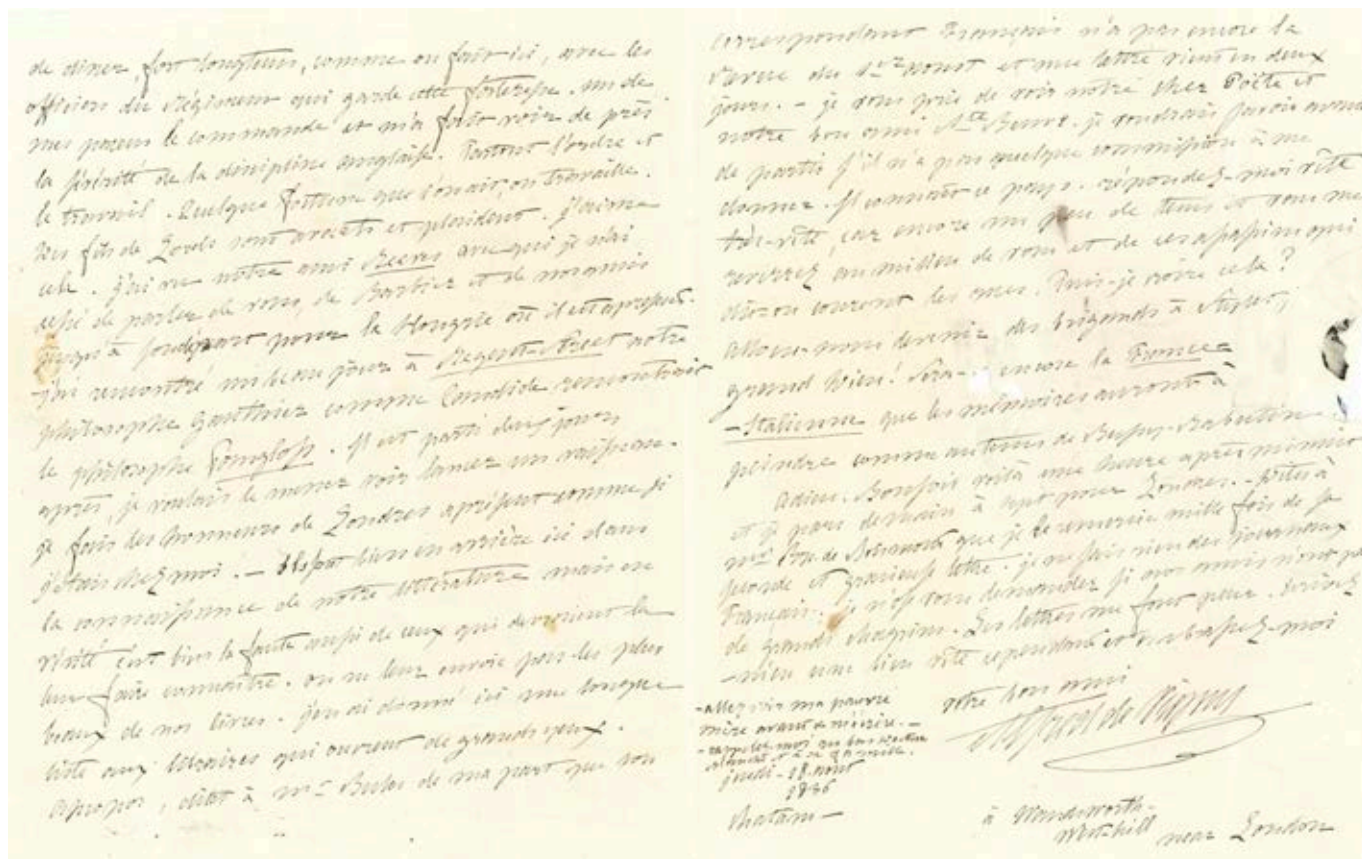 de diner, fort longtems, comme on fait ici, avec les
officiers du Régiment qui garde cette forteresse. un de
mes parens le commande et m'a fait voir de près
la sévérité de la discipline anglaise. Partout l'ordre et
le travail. Quelque fortune que l'on ait, on travaille.
Les fils de Lords sont avocats et plaident. j'aime
cela. j'ai vu notre ami Reeves avec qui je n'ai
cessé de parler de vous, de Barbier et de nos amis
jusqu'à son départ pour la Hongrie où il est aprésent.
- j'ai rencontré un beau jour à Regent-Street notre
philosophe Gauthier comme Candide rencontrait
le philosophe Pangloss. Il est parti deux jours
après, je voulais le mener voir lancer un vaisseau.
je fais les honneurs de Londres aprésent comme si
j'étais chez moi. — On est bien en arrière ici dans
la connaissance de notre littérature mais en
vérité c'est bien la faute aussi de ceux qui devroient la
leur faire connaitre. on ne leur envoie pas les plus
beaux de nos livres. j'en ai donné ici une longue
liste aux libraires qui ouvrent de grands yeux.
Apropos, dites à Mr Buloz de ma part que son
correspondant Français n'a pas encore la
Revue du 1er aoust et une lettre vient en deux
jours. - je vous prie de voir notre cher Poëte et
notre bon ami Ste Beuve. je voudrais savoir avant
de partir s'il n'a pas quelque commission à me
donner. Il connait ce pays. répondez-moi vîte
très-vîte, car encore un peu de tems et vous me
reverrez au milieu de vous et de ces assassins qui
dit-on courent les rues. Puis-je croire cela?
allons-nous devenir des brigands à
grand Dieu! Sera- encore la France
-Italienne que les mémoires auront à
peindre comme au tems de Bussy-Rabutin.
adieu. Bonsoir voilà une heure après minuit
et je pars demain à sept pour Londres. - Dites à
que je la remercie mille fois de sa
seconde et gracieuse lettre. je ne sais rien des journaux
Français. je n'ose vous demander si nos amis n'ont pas
de grands chagrins. Les lettres me font peur. Ecrivez
-m'en une bien vîte cependant et embrassez-moi
votre bon ami
Alfred de Vigny
- allez voir ma pauvre
mère avant de m'écrire. -
- rappelez-moi au bon
et à sa famille.
jeudi - 18 aout
1836
Chatam —
à Wandsworth-
near London